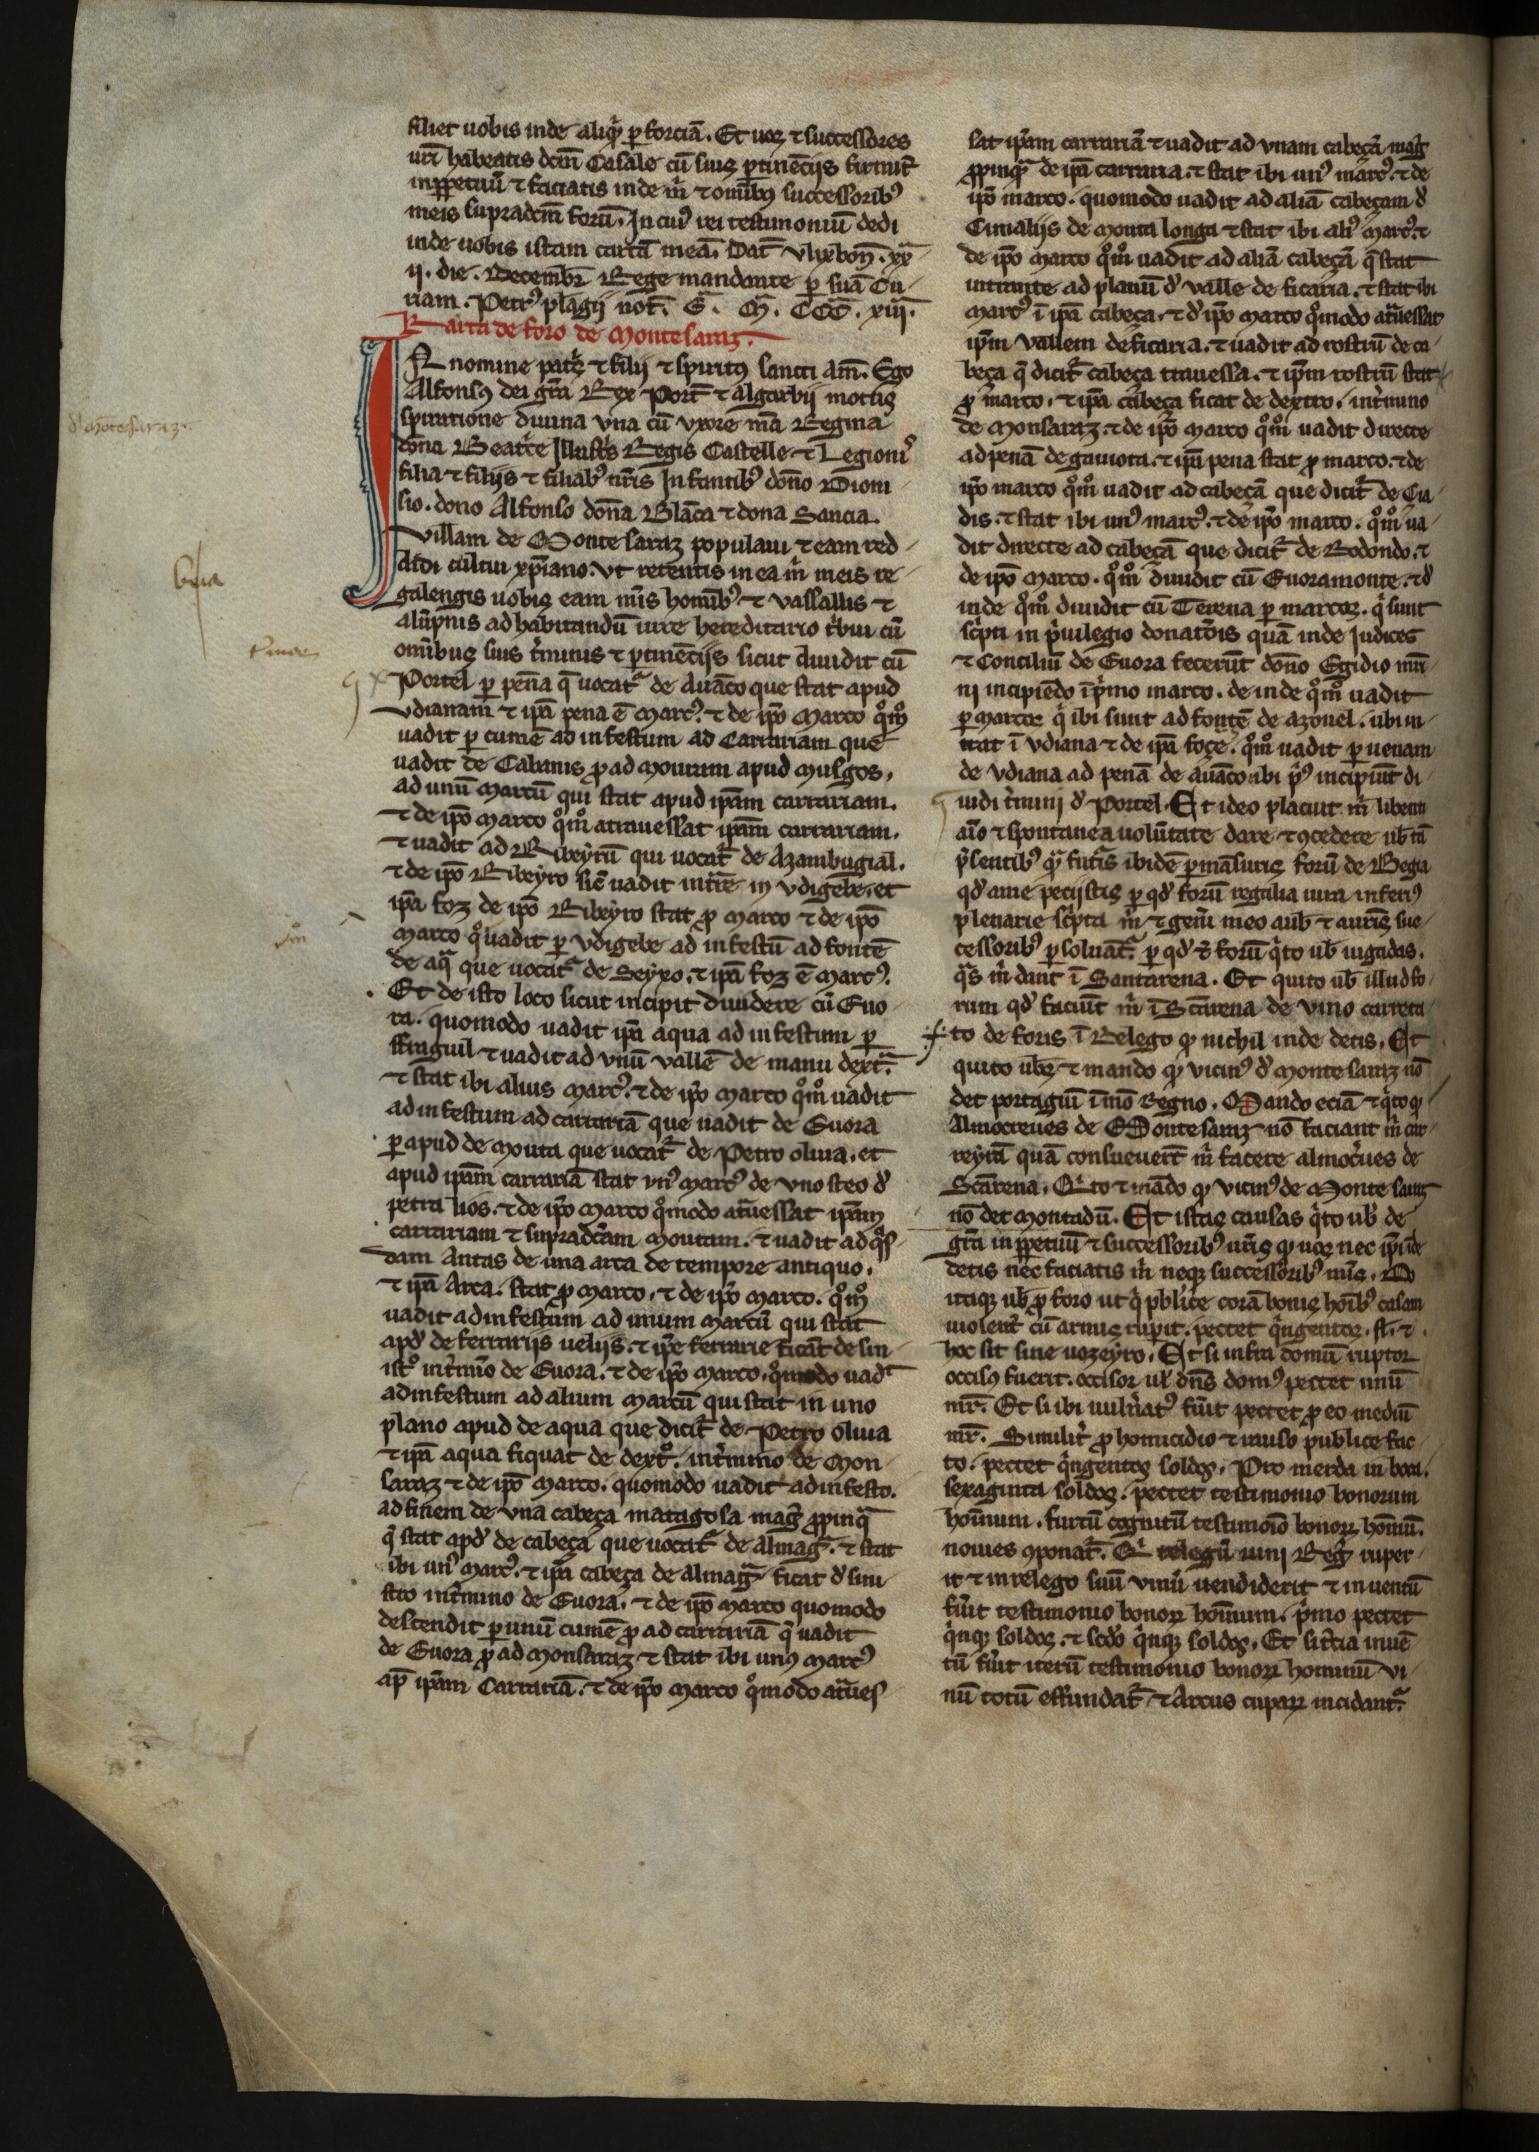 filiet uobis inde aliq̄d p̲ forciā. Et uos ⁊ successores
ur̄i habeatis dcm̄ Casale cū suis ꝑtinēciis firmit̄
inꝑpetuū ⁊ faciatis inde m̄ ⁊ omībus successoribꝰ
meis supradcm̄ forū. In cuiꝰ rei testimoniū dedi
inde uobis istam cartā meā. Dat̄ Vlixbon̄. xx
ii. die. Decembr̄ Rege mandante ꝑ suā Cu-
riam. Petrꝰ plagij not̄. E. M. CCC. xiiij.
Karta de foro de Montesaraz.
IN nomine patꝭ ⁊ filij ⁊ spiritus sancti am̄. Ego
Alfonsꝰ dei gr̄a Rex Port̄ ⁊ Algarbij motus
spiratione diuina vna cū vxore mea Regina
dōna Beatᵉce Illustᵉs Regis Castelle ⁊ Legionꝭ
filia ⁊ filijs ⁊ filiabꝰ nr̄is Infantibꝰ dōno Dioni-
sio. dono Alfonso dōna Blāca ⁊ dona Sancia.
Villam de Monte saraz populaui ⁊ eam red-
didi cultui xp̄iano. Vt retentis in ea m̄ meis re-
galengis uobis eam m̄is homībꝰ ⁊ vassallis ⁊
alūpnis ad habitandū iure hereditario tᵉbui cū
omībus suis tᵉminis ⁊ ꝑtinēcijs sicut diuidit cū
Portel ꝑ penā q̄ uocat̄ de Auāco que stat apud
vdianam ⁊ ip̄a pena ē marcꝰ. ⁊ de ip̄o marco q̊m̊
uadit ꝑ cumē ad infestum ad Carrariam que
uadit de Cabanis ꝓ ad mouram apud mulgos.
ad unū marcū qui stat apud ip̄am carrariam.
⁊ de ip̄o marco q̊m̊ atrauessat ip̄am carrariam.
⁊ uadit ad Ribeyrū qui uocat̄ de Azambugial.
⁊ de ip̄o Ribeyro sic̄ uadit intrāre in vdigebe. et
ip̄a foz de ip̄o Ribeyro stat ꝓ marco ⁊ de ip̄o
marco q̊ uadit ꝑ vdigebe ad infestū ad fontē
de aqᵃ que uocat̄ de Seyxo. ⁊ ip̄a foz ē marcꝰ.
Et de isto loco sicut incipit diuidere cū Euo-
ra. quomodo uadit ip̄a aqua ad infestum ꝑ
⁊ uadit ad vnū vallē de manu dextᵃ.
⁊ stat ibi alius marcꝰ. ⁊ de ip̄o marco q̊m̊ uadit
ad infestum ad carrariā que uadit de Euora
ꝑ apud de mouta que uocat̄ de Petro oliua. et
apud ip̄am carrariā stat vnꝰ marcꝰ de vno steo đ
petra uos. ⁊ de ip̄o marco q̊modo atᵃuessat ip̄am
carrariam ⁊ supradcām moutam. ⁊ uadit ad qᵒs-
dam Antas de una arca de tempore antiquo.
⁊ ip̄a Arca. stat ꝓ marco. ⁊ de ip̄o marco. q̊m̊
uadit ad infestum ad unum marcū qui stat
apđ de ferrarijs uelijs. ⁊ ip̄e ferrarie ficāt de sin-
istᵒ intᵉmīo de Euora. ⁊ de ip̄o marco. q̊modo uadᵗ
ad infestum ad alium marcū qui stat in uno
plano apud de aqua que dicit̄ de Petro oliua
⁊ ip̄a aqua fiquat de dextᵒ. intᵉmino de Mon-
saraz ⁊ de ip̄o marco. quomodo uadit ad infesto.
ad finem de vna cabeça matagosa magꝭ ꝓpinqᵃ
q̄ stat apđ de cabeça que uocat̄ de Almagᵃ. ⁊ stat
ibi unꝰ marcꝰ. ⁊ ip̄a cabeça de almagᵃ ficat đ sini-
stro intᵉmino de Euora. ⁊ de ip̄o marco quomodo
descendit ꝑ unū cumē ꝓ ad carrariā q̄ uadit
de Euora ꝓ ad monsaraz ⁊ stat ibi unꝰ marcꝰ
ap̄ ip̄am Carrariā. ⁊ de ip̄o marco q̊modo atᵃues-
sat ip̄am carrariā ⁊ uadit ad vnam cabeçā magꝭ
ꝓpinqᵃ de ip̄a carraria. ⁊ stat ibi unꝰ marcꝰ. ⁊ de
ip̄o marco. quomodo uadit ad aliā cabeçam đ
Cimalijs de mouta longa ⁊ stat ibi aliꝰ marcꝰ. ⁊
de ip̄o marco q̊m̊ uadit ad aliā cabeçā q̄ stat
intrante ad planū đ ualle de ficaria. ⁊ stat ibi
marcꝰ ī ip̄a cabeça. ⁊ đ ip̄o marco q̊modo atᵃuessat
ip̄m vallem de ficaria. ⁊ uadit ad rostrū de ca-
beça q̄ dicit̄ cabeça trauessa. ⁊ ip̄m rostrū stat
ꝓ marco. ⁊ ip̄a cabeça ficat de dextro. intᵉmino
de Monsaraz. ⁊ de ip̄o marco q̊m̊ uadit directe
ad penā de gauiota. ⁊ ip̄a pena stat ꝓ marco. ⁊ de
ip̄o marco q̊m̊ uadit ad cabeçā que dicit̄ de Cia-
dis. ⁊ stat ibi unꝰ marcꝰ. ⁊ de ip̄o marco. q̊m̊ ua-
dit directe ad cabeçā que dicit̄ de Rodondo. ⁊
de ip̄o marco. q̊m̊ diuidit cū Euoramonte. ⁊ đ
inde q̊m̊ diuidit cū Terena ꝑ marcos. qⁱ sunt
scᵢpti in pᵢuilegio donatōis quā inde Iudices
⁊ Conciliū de Euora fecerūt dōno Egidio mar̄-
ni incipiēdo ī pᵢmo marco. de inde q̊m̊ uadit
ꝑ marcos qⁱ ibi sunt ad fontē de azouel. ubi in-
trat ī vdiana ⁊ de ip̄a foçe. q̊m̊ uadit ꝑ uenam
de vdiana ad penā de auāco ubi pᵢꝰ incipiūt di-
uidi tᵉmini đ Portel. Et ideo placuit m̄ libenti
aīo ⁊ spontanea uolūtate dare ⁊ ꝯcedere ub̄ tā
pᵉsentibꝰ qᵃm futᵃis ibidē ꝑmāsuris forū de Begia
qđ a me petijstis ꝑ qđ forū regalia iura inferiꝰ
plenarie scᵢpta m̄ ⁊ geñi meo aub̄ ⁊ auris suc-
cessoribꝰ ꝑsoluāt̄. ꝑ qđ ⁊ forū qⁱto ub̄ iugadas.
qᵃs m̄ dant ī Santarena. Et quito ub̄ illud fo-
rum qđ faciūt m̄ ī Scārena de vino carreta-
to de foris ī Relego ꝙ nichil inde detis. Et
quito ub̄ ⁊ mando ꝙ vicinꝰ đ Monte saraz nō
det portagiū ī meo Regno. Mando eciā ⁊ qⁱto ꝙ
Almocreues de Monte saraz nō faciant m̄ car-
reyrā quā consueuerūt m̄ facere almocᵉues de
Scārena. Qⁱto ⁊ mādo ꝙ vicinꝰ de Monte saraz
nō det montadū. Et istas causas qⁱto ub̄ de
gr̄a inꝑpetuū ⁊ successoribꝰ ur̄is ꝙ uos nec ip̄i īde
detis nec faciatis m̄ neqꝫ successoribꝰ m̄is. Do
itaqꝫ ub̄ ꝓ foro ut qⁱ pblice corā bonis hoībꝰ casam
uiolent̄ cū armis rupit. pectet qⁱngentos. sł. ⁊
hoc sit sine uozeyro. Et si infra domū ruptor
occisꝰ fuerit. occisor ul̄ dn̄s domꝰ pectet unū
mr̄. Et si ibi uulnᵉatꝰ fuīt pectet ꝓ eo mediū
mr̄. Similit̄ ꝓ homicidio ⁊ rauso publice fac-
to. pectet qⁱngentos soldos. Pro merda in bocā.
sexaginta soldos. pectet testimonio bonorum
hominum. Furtū cognitū testimōio bonoꝝ homīū.
nouies ꝯponat̄. Qⁱ relegū uini Regꝭ ruper-
it ⁊ in relego suū vinū uendiderit ⁊ inuentū
fuīt testimonio bonoꝝ homīnum. pᵢmo pectet
qⁱnqꝫ soldos. ⁊ scđo qⁱnqꝫ soldos. Et si tᵉcia inuē-
tū fuīt iterū testimonio bonoꝝ hominū vi-
nū totū effundat̄ ⁊ Arcus cupaꝝ incidant̄.